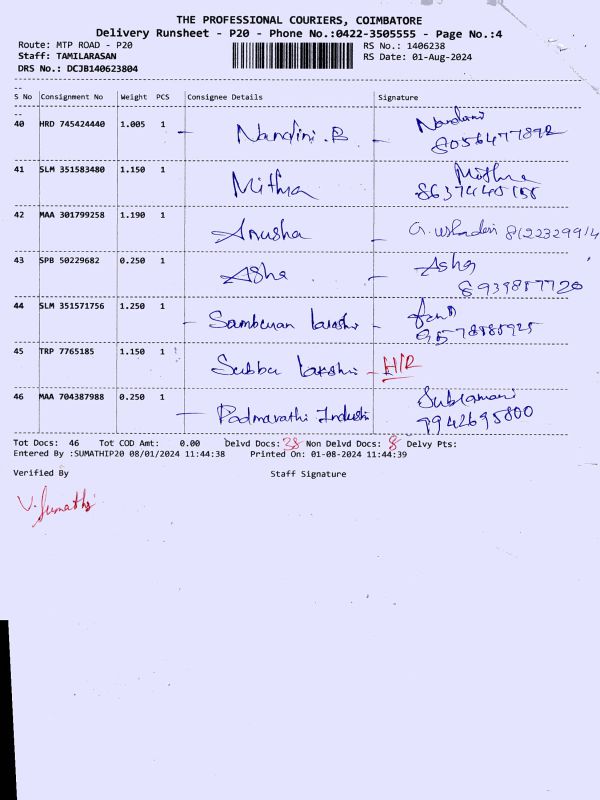 THE PROFESSIONAL COURIERS, COIMBATORE
Delivery Runsheet - P20 - Phone No.:0422-3505555 - Page No.:4
Route: MTP ROAD - P20 RS No.: 1406238
Staff: TAMILARASAN RS Date: 01-Aug-2024
DRS No.: DCJB140623804
S No Consignment No Weight PCS Consignee Details Signature
40 HRD 745424440 1.005 1 Nandini.B Nandini
8056477892
41 SLM 351583480 1.150 1 Mithra Mithra
42 MAA 301799258 1.190 1 Anusha 8122329914
43 SPB 50229682 0.250 1 Asha Asha
8939857720
44 SLM 351571756 1.250 1
9578985925
45 TRP 7765185 1.150 1 Subbu
46 MAA 704387988 0.250 1 Padmavathi Industri Subramani
9942695800
Tot Docs: 46 Tot COD Amt: 0.00 Delvd Docs: 38 Non Delvd Docs: 8 Delvy Pts:
Entered By :SUMATHIP20 08/01/2024 11:44:38 Printed On: 01-08-2024 11:44:39
Verified By Staff Signature
V. Sumathi